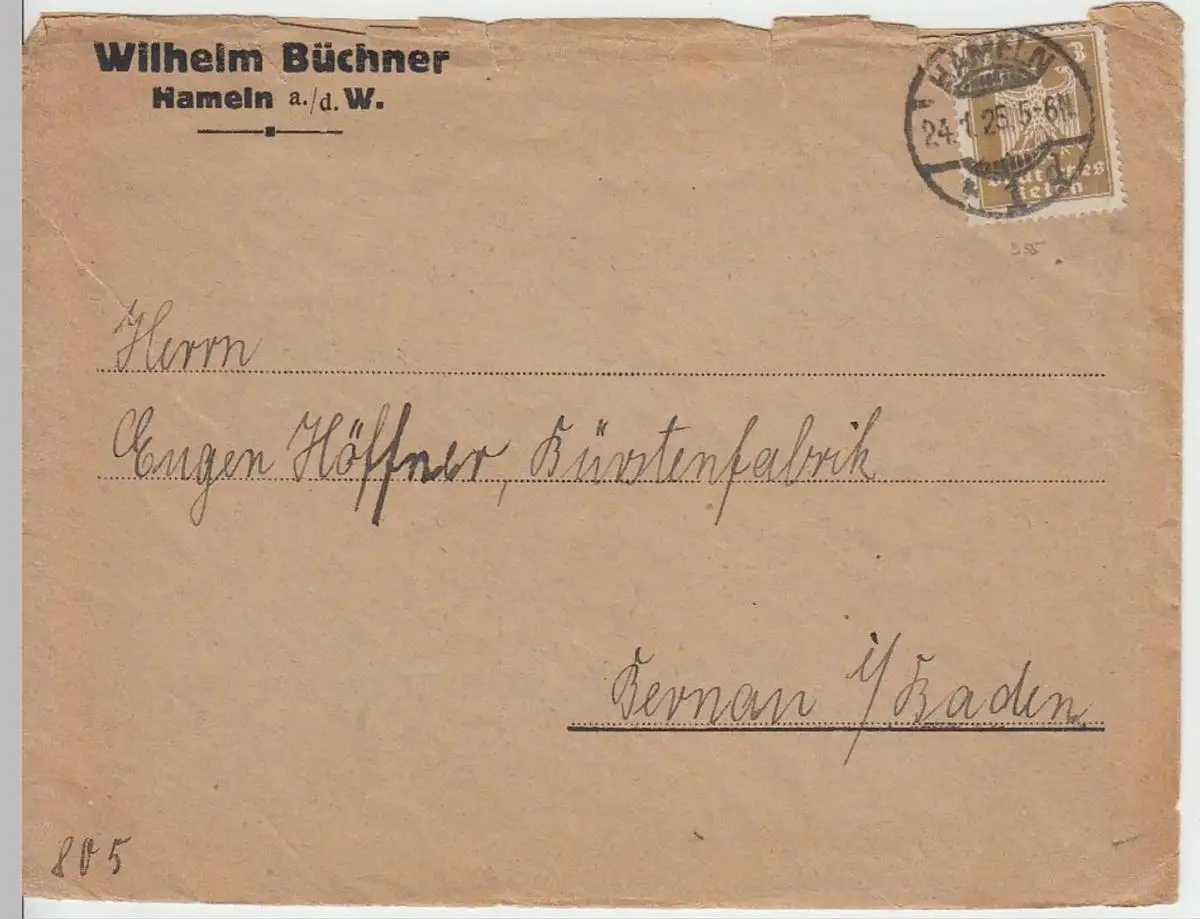 Wilhelm Büchner
Hameln a./d. W.
HAMELN
24.1.25.5-6N.
* 1 d
3
Deutsches
Reich
Herrn
Eugen Höffner, Bürstenfabrik
Bernau i/Baden
805